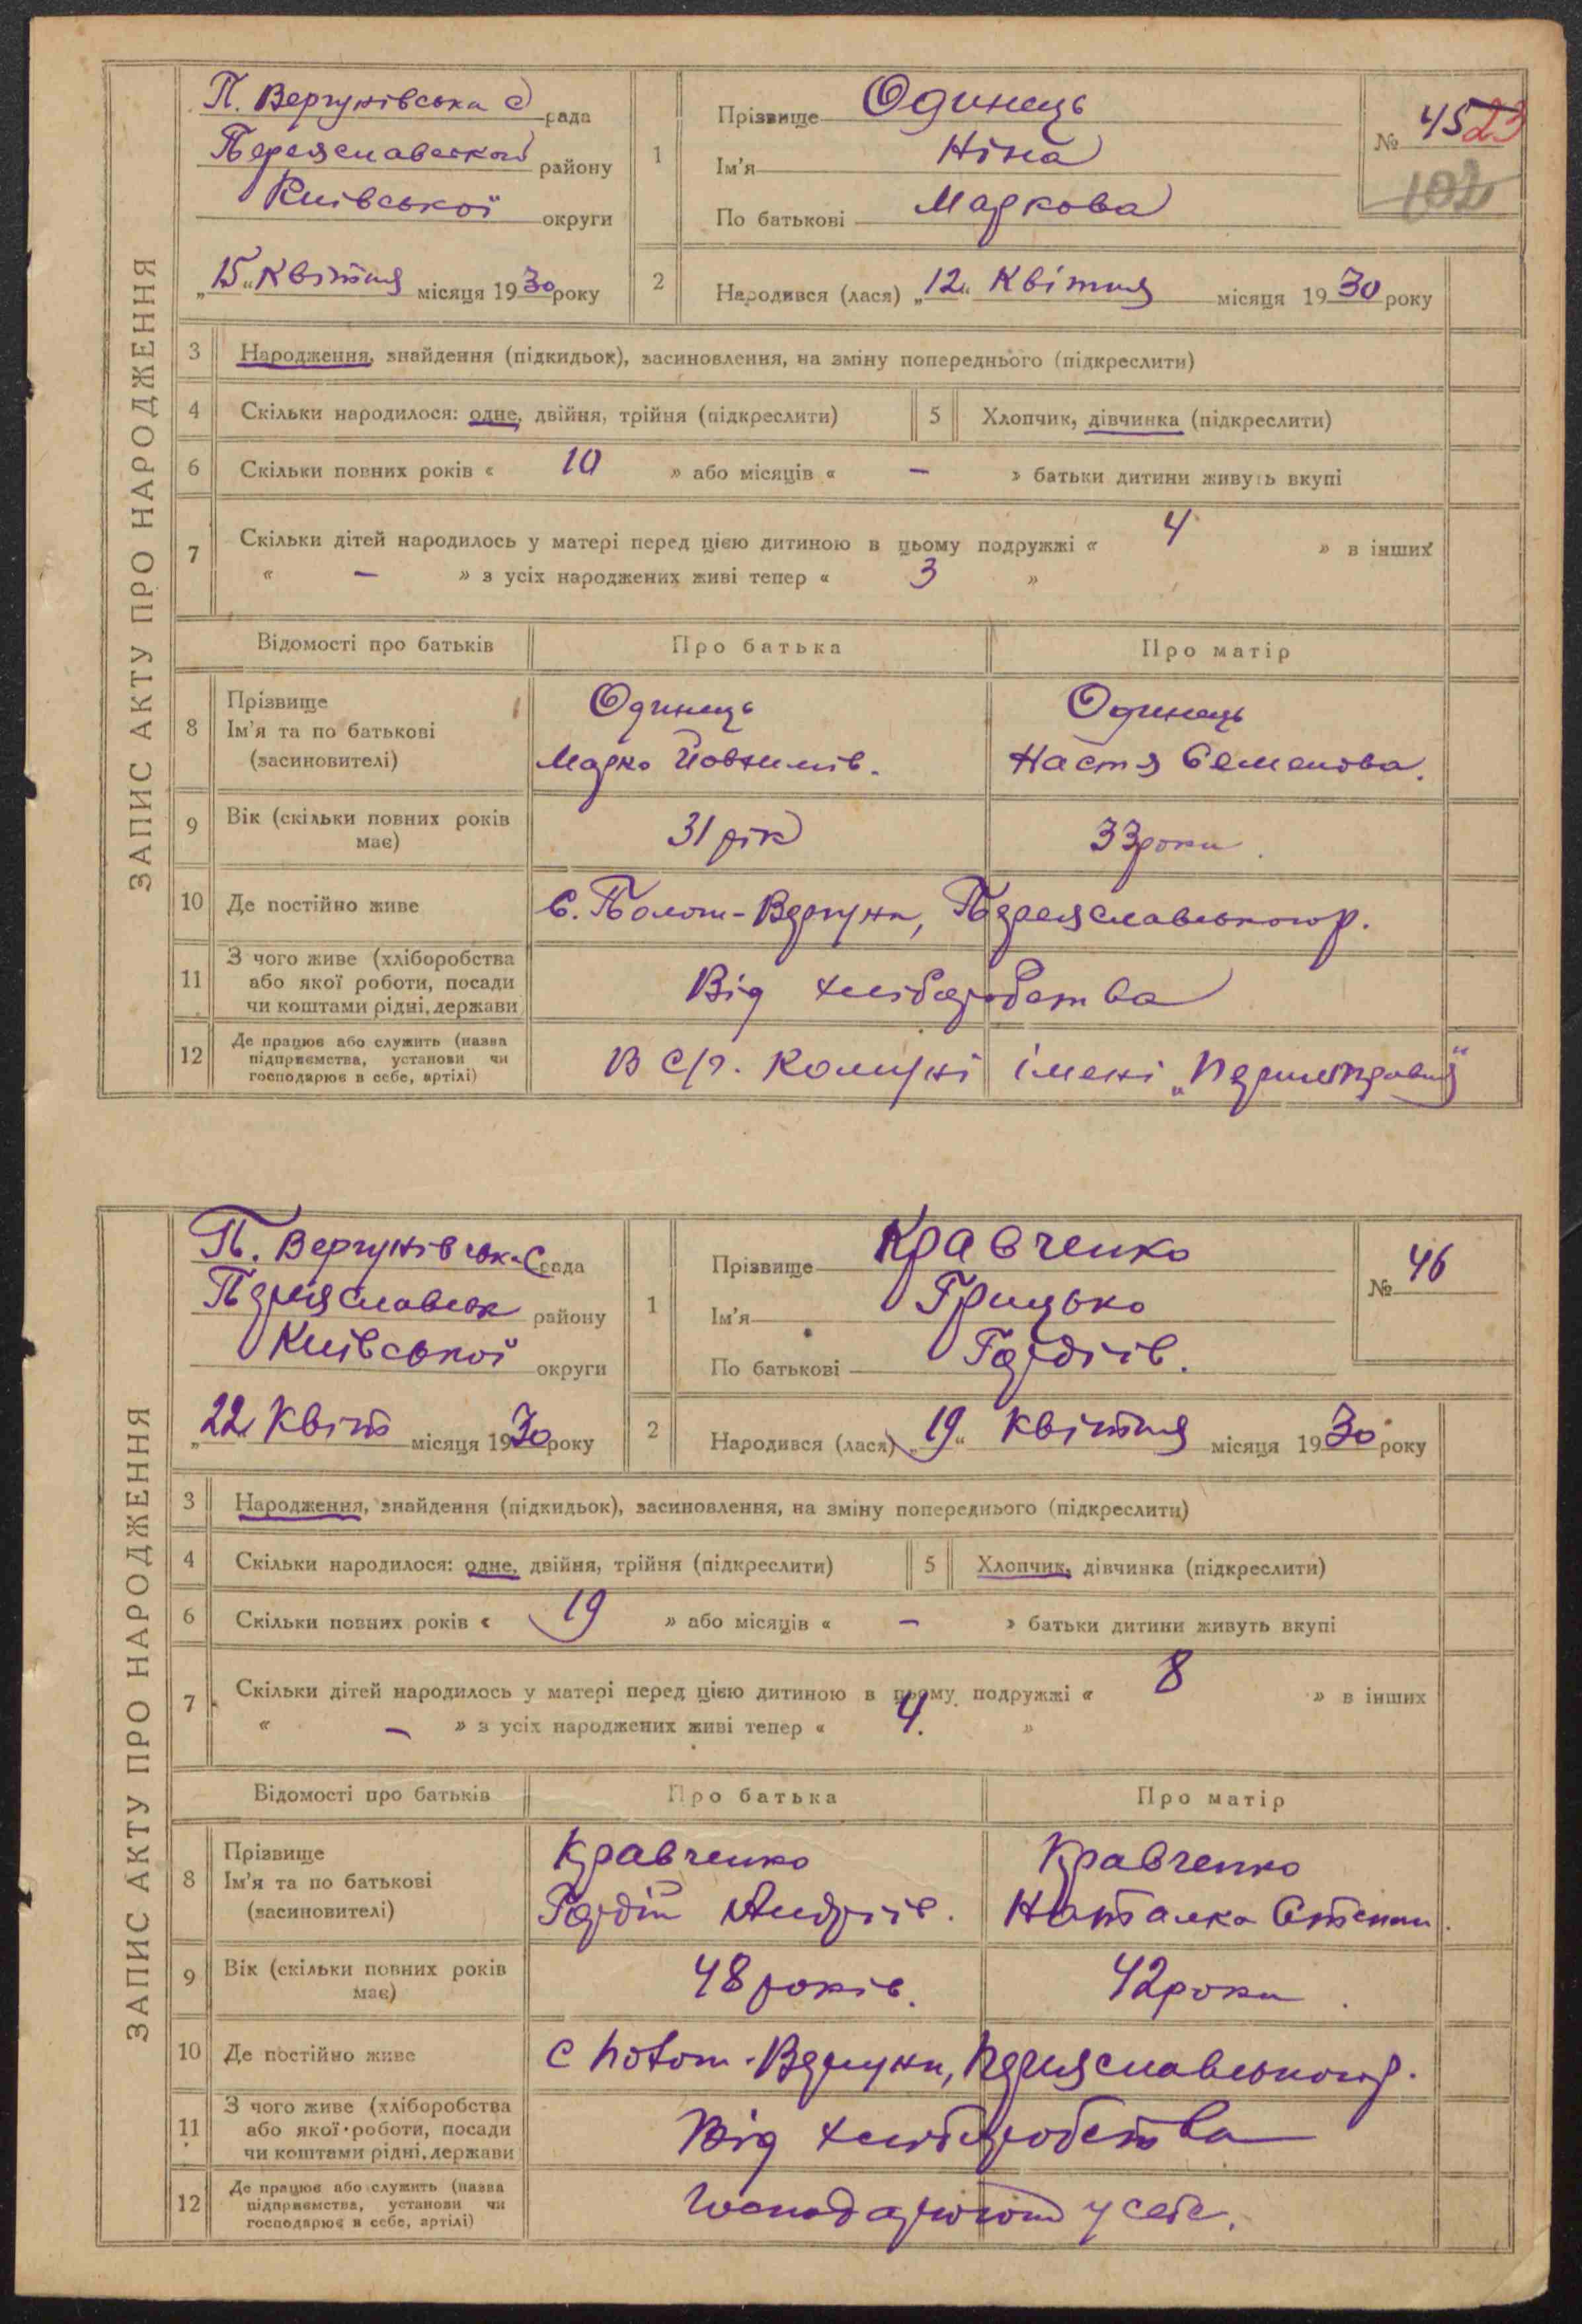 ЗАПИС АКТУ ПРО НАРОДЖЕННЯ
П. Вергунівська с рада
Переяславськой району
Київської округи
„15" Квітня місяця 1930 року
1
Прізвище Одинець
Ім'я Ніна
По батькові Маркова
№ 45 23
102
2
Народився (лася) „12" Квітня місяця 1930 року
3 Народження, знайдення (підкидьок), засиновлення, на зміну попереднього (підкреслити)
4 Скільки народилося: одне, двійня, трійня (підкреслити) 5 Хлопчик, дівчинка (підкреслити)
6 Скільки повних років « 10 » або місяців « – » батьки дитини живуть вкупі
7 Скільки дітей народилось у матері перед цією дитиною в цьому подружжі « 4 » в інших
« – » з усіх народжених живі тепер « 3 »
Відомості про батьків Про батька Про матір
8 Прізвище Одинець Одинець
Ім'я та по батькові Марко Йовхимів. Настя Семенова.
(засиновителі)
9 Вік (скільки повних років має) 31 рік 33 роки.
10 Де постійно живе С. Полот-Вергуни, Переяславського р.
11 З чого живе (хліборобства
або якої роботи, посади
чи коштами рідні, держави
Від хліборобства
12 Де працює або служить (назва
підприємства, установи чи
господарює в себе, артілі)
В с/г. Комуні імені
ЗАПИС АКТУ ПРО НАРОДЖЕННЯ
П. Вергунівськ. С рада
Переяславськ району
Київської округи
„22 Квітн місяця 1930 року
1
Прізвище Кравченко
Ім'я Грицько
По батькові Гордіїв.
№ 46
2
Народився (лася) „19" Квітня місяця 1930 року
3 Народження, знайдення (підкидьок), засиновлення, на зміну попереднього (підкреслити)
4 Скільки народилося: одне, двійня, трійня (підкреслити) 5 Хлопчик, дівчинка (підкреслити)
6 Скільки повних років « 19 » або місяців « – » батьки дитини живуть вкупі
7 Скільки дітей народилось у матері перед цією дитиною в цьому подружжі « 8 » в інших
« – » з усіх народжених живі тепер « 4. »
Відомості про батьків Про батька Про матір
8 Прізвище Кравченко Кравченко
Ім'я та по батькові Гордій Андріїв. Наталка Степан.
(засиновителі)
9 Вік (скільки повних років має) 48 років. 42 роки.
10 Де постійно живе С Полот-Вергуни, Переяславського р.
11 З чого живе (хліборобства
або якої роботи, посади
чи коштами рідні, держави
Від хліборобства
12 Де працює або служить (назва
підприємства, установи чи
господарює в себе, артілі)
Господарюють у себе.